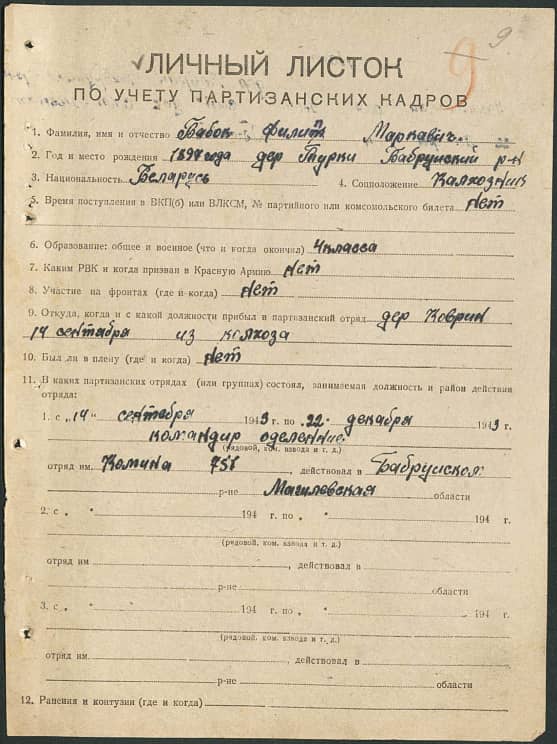 9
9
ЛИЧНЫЙ ЛИСТОК
ПО УЧЕТУ ПАРТИЗАНСКИХ КАДРОВ
1. Фамилия, имя и отчество Бабок Филипп Маркавич
2. Год и место рождения 1897 года дер Турки Бабруйский р-н
3. Национальность Беларусь 4. Соцположение Калхозник
5. Время поступления в ВКП(б) или ВЛКСМ, № партийного или комсомольского билета Нет
6. Образование: общее и военное (что и когда окончил) 4 класса
7. Каким РВК и когда призван в Красную Армию Нет
8. Участие на фронтах (где и когда) Нет
9. Откуда, когда и с какой должности прибыл в партизанский отряд дер Коврин
14 сентабра из колхоза
10. Был ли в плену (где и когда) Нет
11. В каких партизанских отрядах (или группах) состоял, занимаемая должность и район действия
отряда:
1. с „14" сентебра 1943 г. по „22" декабра 1943 г.
командир оделение
(рядовой, ком. взвода и т. д.)
отряд им. 751, действовал в Бабруйском
р-не Магилевская области
2. с „ " 194 г. по „ " 194 г.
(рядовой, ком. взвода и т. д.)
отряд им , действовал в
р-не области
3. с „ " 194 г. по „ " 194 г.
(рядовой, ком. взвода и т. д.)
отряд им , действовал в
р-не области
12. Ранения и контузии (где и когда)